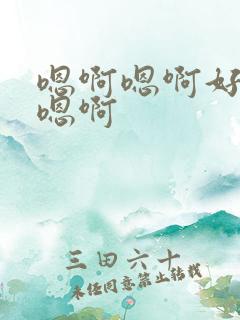 嗯啊嗯啊好
嗯啊
三田六十
未经同意禁止转载